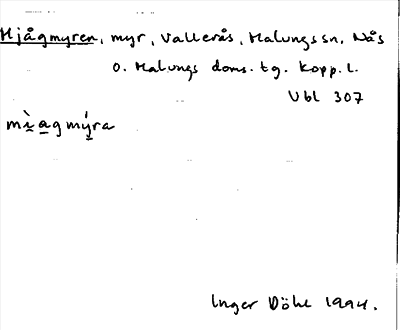 Mjågmyren, myr, Vallerås, Malungs sn, Nås
o. Malungs doms. tg. Kopp. l.
Vbl 307
mìagmýra
Inger Döhl 1994.